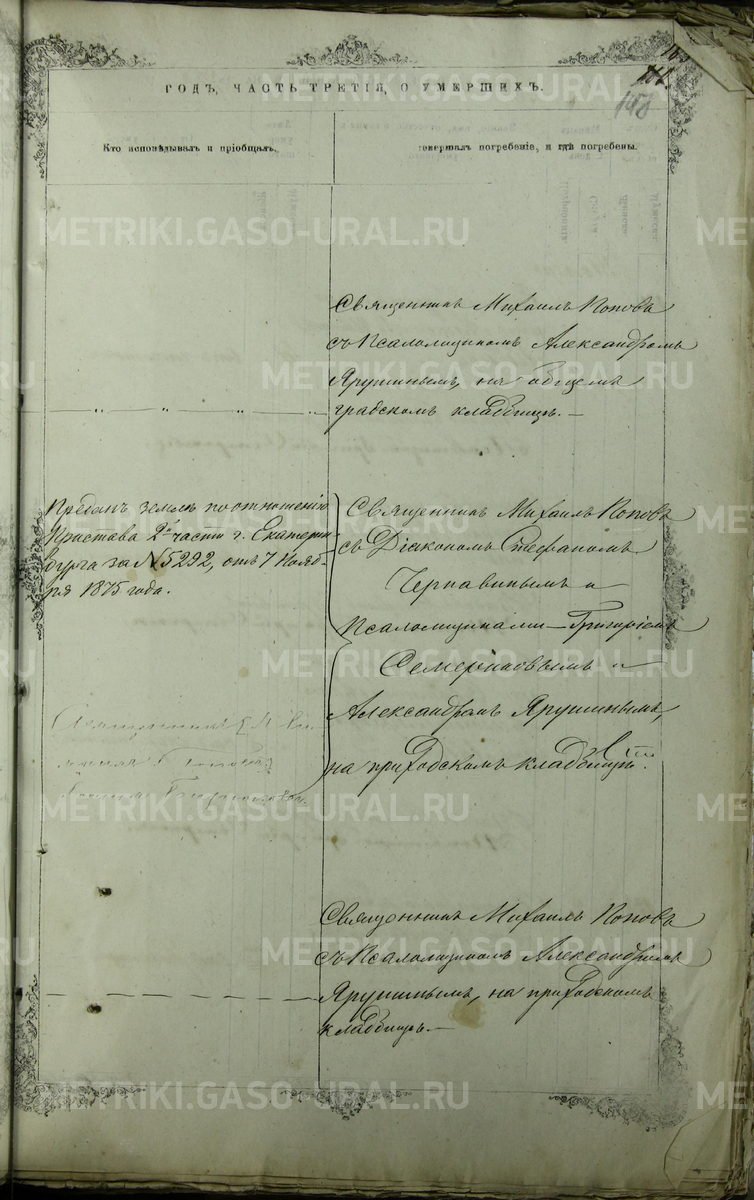 ГОДЪ, ЧАСТЬ ТРЕТІЯ, О УМЕРШИХЪ.
140
Кто исповѣдывалъ и пріобщалъ.
совершалъ погребеніе, и гдѣ погребены.
METRIKI.GASO-URAL.RU
Священникъ Михаилъ Поповъ
съ Псаломщикомъ Александромъ
Ярушинымъ, на общемъ
градскомъ кладбищѣ.—
Преданъ землѣ по отношенію
Пристава 2й части г. Екатерин-
бурга за № 5292, отъ 7 Нояб-
ря 1875 года.
Священникъ Михаилъ Поповъ
съ Діакономъ Стефаномъ
Чернавинымъ и
Псаломщиками—Григоріемъ
Семерниковымъ и
Александромъ Ярушинымъ,
на приходскомъ кладбищѣ.
Священникъ Михаилъ Поповъ
съ Псаломщикомъ Александромъ
Ярушинымъ, на приходскомъ
кладбищѣ.—